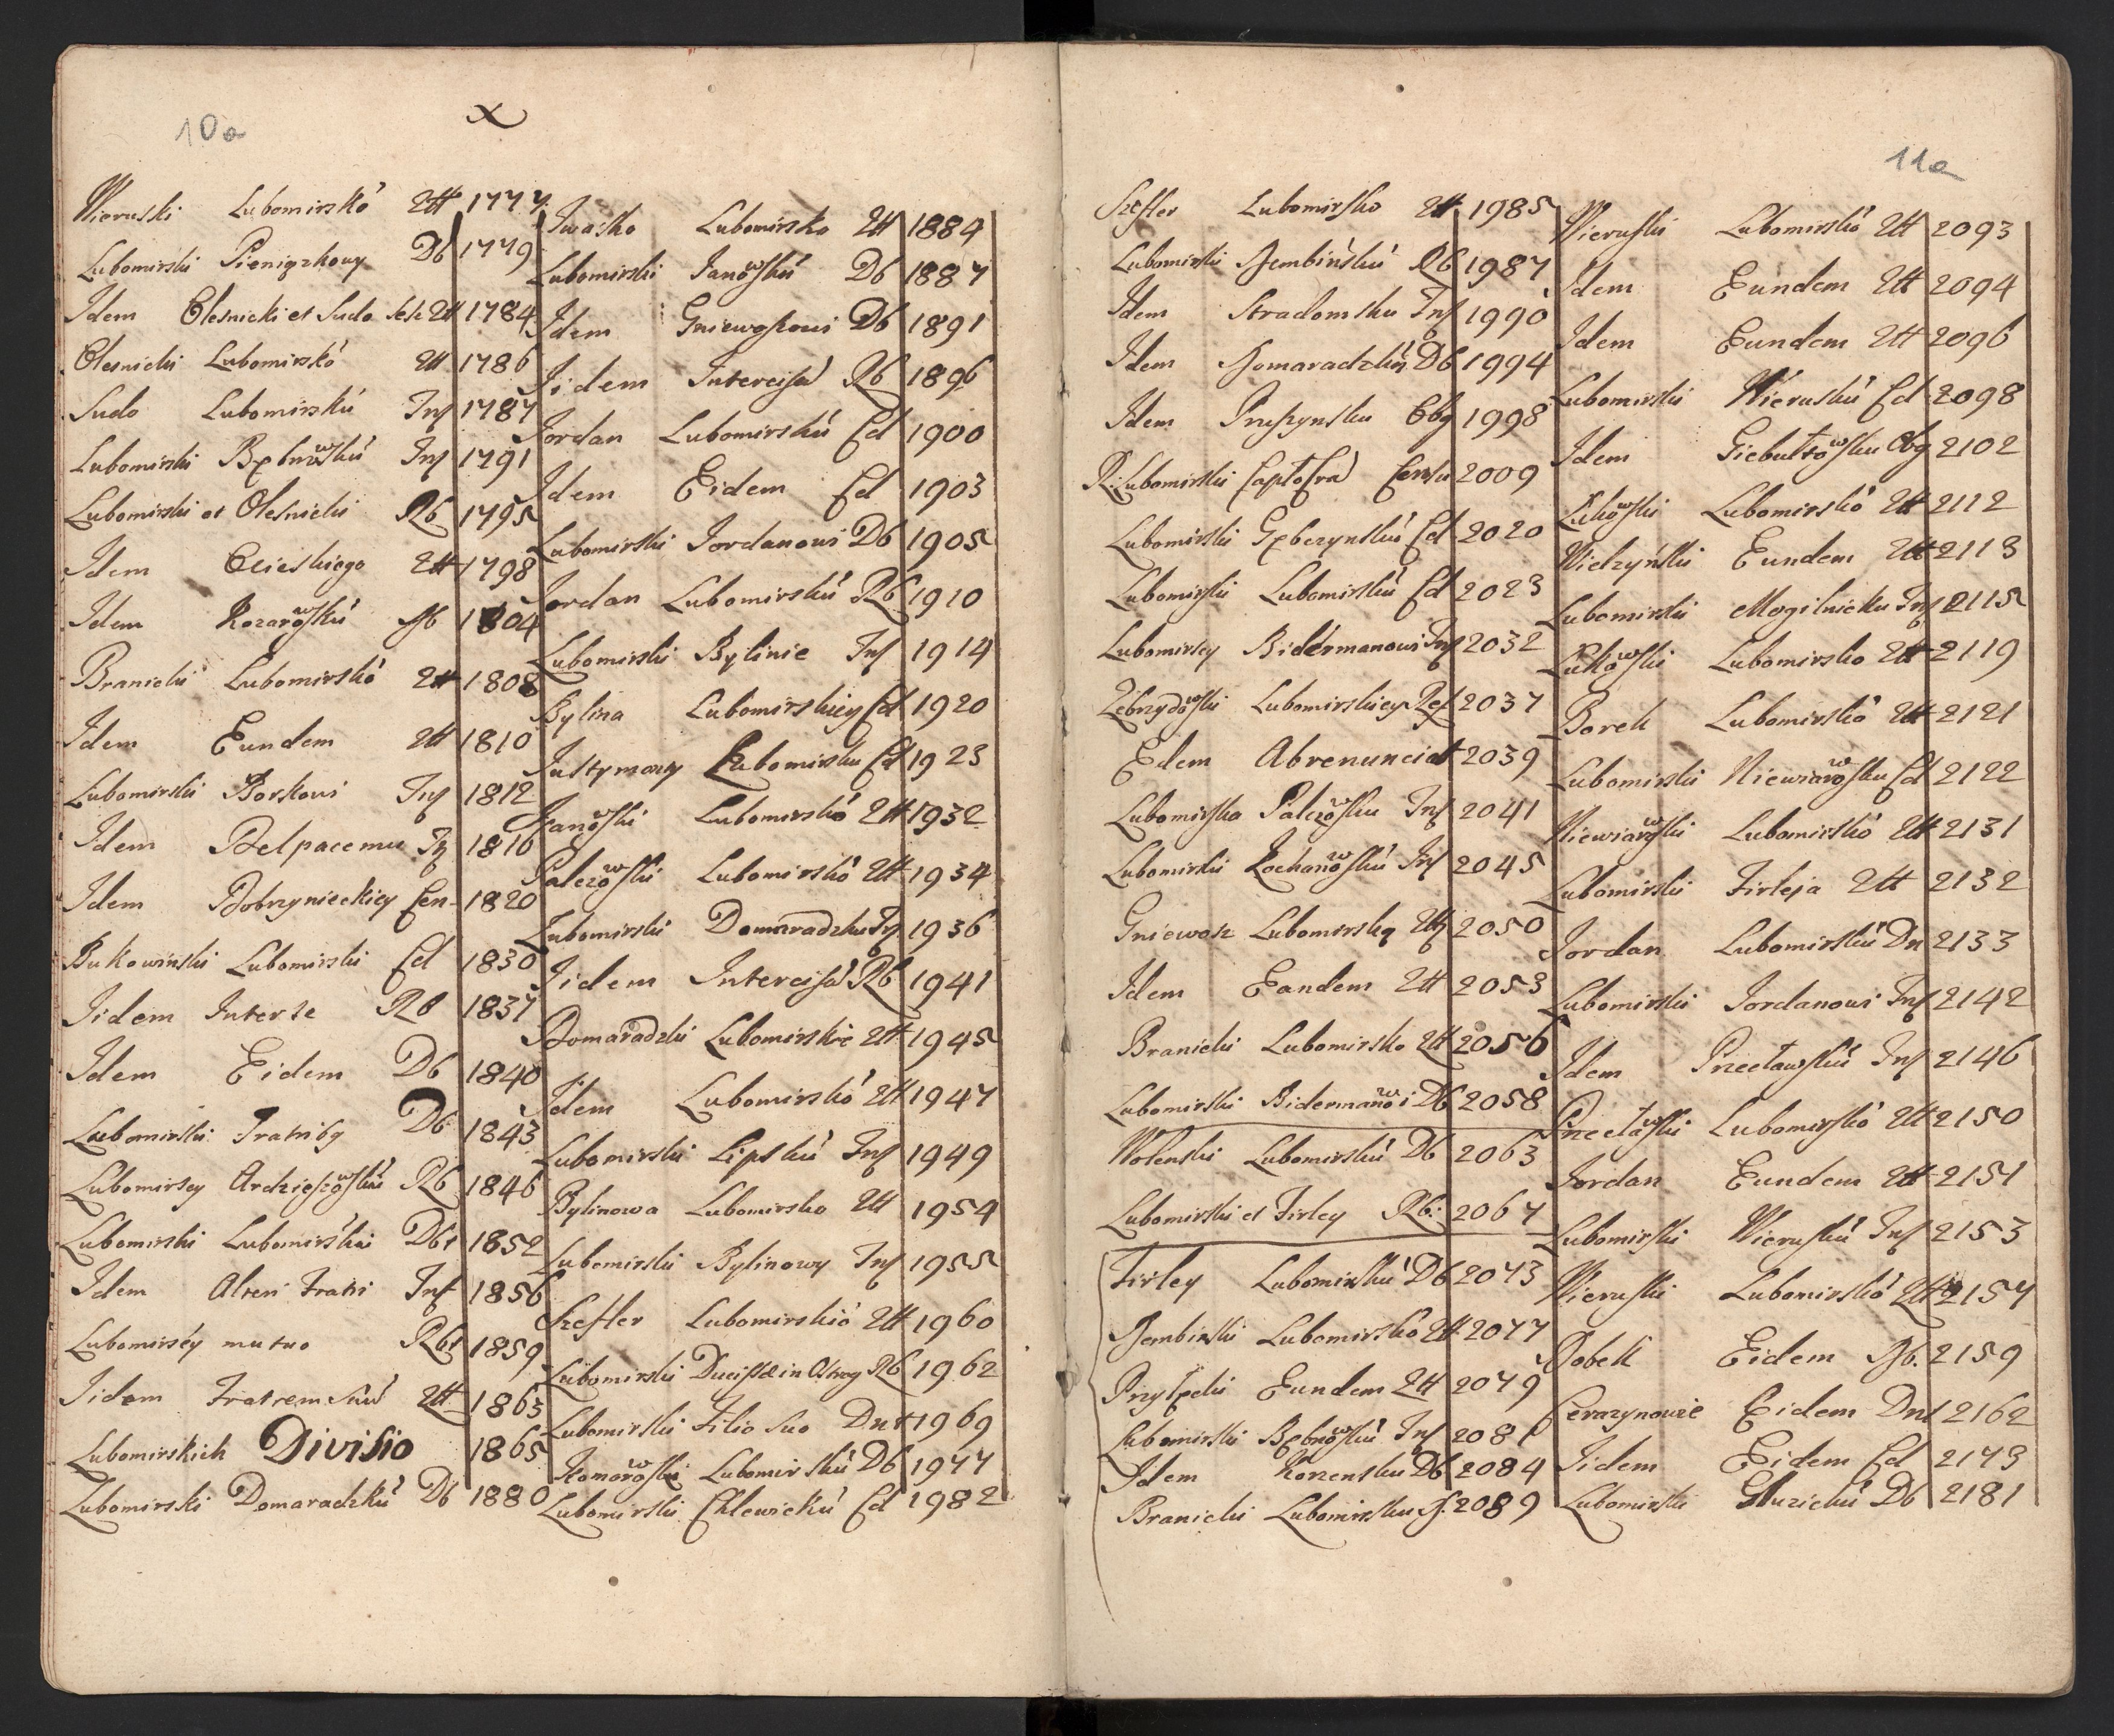 10a
X
Wieruski Lubomirskó Qtt 1777.
Lubomirski Pieniązkowy Db 1779
Idem Olesnicki et Sudo Qtt 1784
Olesnicki Lubomirskó Qtt 1786
Sudo Lubomirskú Ins 1787
Lubomirski Ins 1791
Lubomirski et Olesnicki Rb 1795
Idem Qtt 1798
Idem 1804
Branicki Lubomirskó Qtt 1808
Idem Eundem Qtt 1810
Lubomirski Borkowi Ins 1812
Idem Delpacemu 1816
Idem Dobrzynieckiey Cen 1820
Bukowinski Lubomirski Cd 1830
Iidem Inter se Rb 1837
Idem Eidem Db 1840
Lubomirski Db 1843
Lubomirscy Rb 1846
Lubomirski Db 1852
Idem Ins 1856
Lubomirscy mutuo 1859
Iidem Fratrem Suú Qtt 1863
Lubomirskich Divisio 1865
Lubomirski Domaradzkú Db 1880
Iwasko Lubomirsko Qtt 1884
Lubomirski Janowskú Db 1887
Idem Gniewoszowi Db 1891
Iidem Rb 1896
Jordan Lubomirskú Cd 1900
Idem Eidem Cd 1903
Lubomirski Jordanowi Db 1905
Jordan Lubomirskú Rb 1910
Lubomirski Bylinie Ins 1914
Bylina Lubomirskiey Cd 1920
Lubomirsku Cd 1923
Lubomirskó Qtt 1932
Palczowski Lubomirskó Qtt 1934
Lubomirski Domaradzku 1936
Iidem Rb 1941
Domaradzki Lubomirskie Qtt 1945
Idem Lubomirskó Qtt 1947
Lubomirski Lipskú Ins 1949
Bylinowa Lubomirsko Qtt 1954
Lubomirski Bylinowy Ins 1955
Szefler Lubomirskió Qtt 1960
Lubomirski Rb 1962
Lubomirski Filio Suo 1969
Komorowski Lubomirskú Db 1977
Lubomirski Chlewickú Cd 1982
11a
Szefler Lubomirsko Qtt 1985
Lubomirski Dembińskú Rb 1987
Idem Stradomsku Ins 1990
Idem Domaradzkú Db 1994
Idem Pruszynsku Obg 1998
Lubomirski 2009
Lubomirski Cd 2020
Lubomirski Lubomirskú Cd 2023
Lubomirscy Bidermanowi Ins 2032
Zebrzydowski Lubomirskiey 2037
Edem Abrenunciat 2039
Lubomirska Palczowsku Ins 2041
Lubomirski Kochanowskú Ins 2045
Gniewosz Lubomirską Qtt 2050
Idem Eandem Qtt 2053
Branicki Lubomirsko Qtt 2056
Lubomirski Bidermanowi Db 2058
Wolenski Lubomirskú Db 2063
Lubomirski et Firley Rb: 2067
Firley Lubomirskú Db 2073
Dembinski Lubomirsko Qtt 2077
Przyłęcki Eundem Qtt 2079
Lubomirski Ins 2081
Idem Korzensku Db 2084
Branicki Lubomirsku 2089
Wieruski Lubomirskó Qtt 2093
Idem Eundem Qtt 2094
Idem Eundem Qtt 2096
Lubomirski Wieruskú Cd 2098
Idem Giebułtowsku Obg 2102
Lubomirskó Qtt 2112
Eundem Qtt 2113
Lubomirski Mogilnicku Ins 2115
Lubomirsko Qtt 2119
Borek Lubomirskó Qtt 2121
Lubomirski Niewiarowsku Cd 2122
Niewiarowski Lubomirskó Qtt 2131
Lubomirski Firleja Qtt 2132
Jordan Lubomirskú Dn 2133
Lubomirski Jordanowi Ins 2142
Idem Przecławskú Ins 2146
Przecławski Lubomirskó Qtt 2150
Jordan Eundem Qtt 2151
Lubomirski Wieruskú Ins 2153
Wieruski Lubomirskó Qtt 2157
Eidem 2159
Eidem 2162
Iidem Eidem Cd 2173
Lubomirski Db 2181